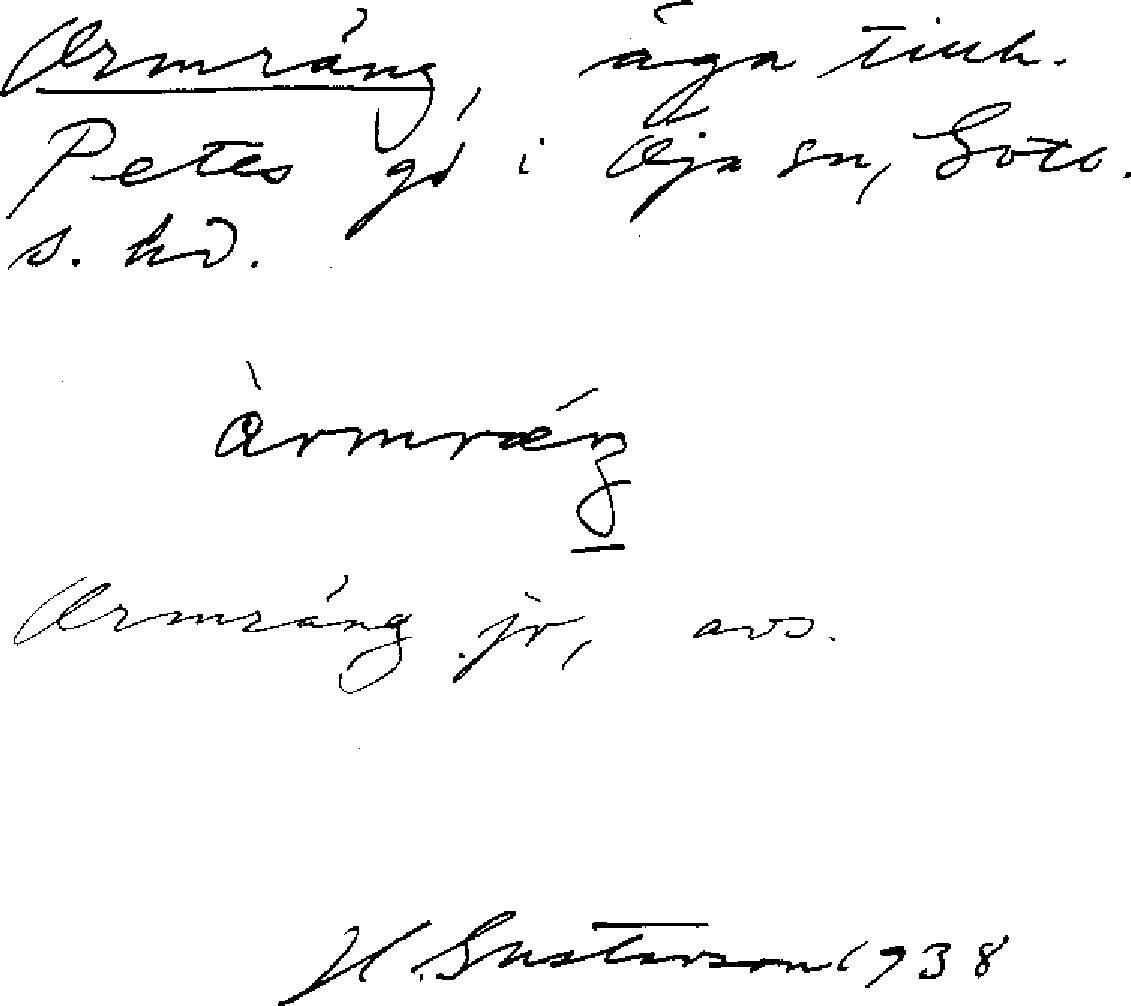 Ormráng, åga tiuh.
Petes gd i Öja sn, Goto.
s. hd.
àrmræŋ
Ormráng jr, avs.
H. Gustavson 1938